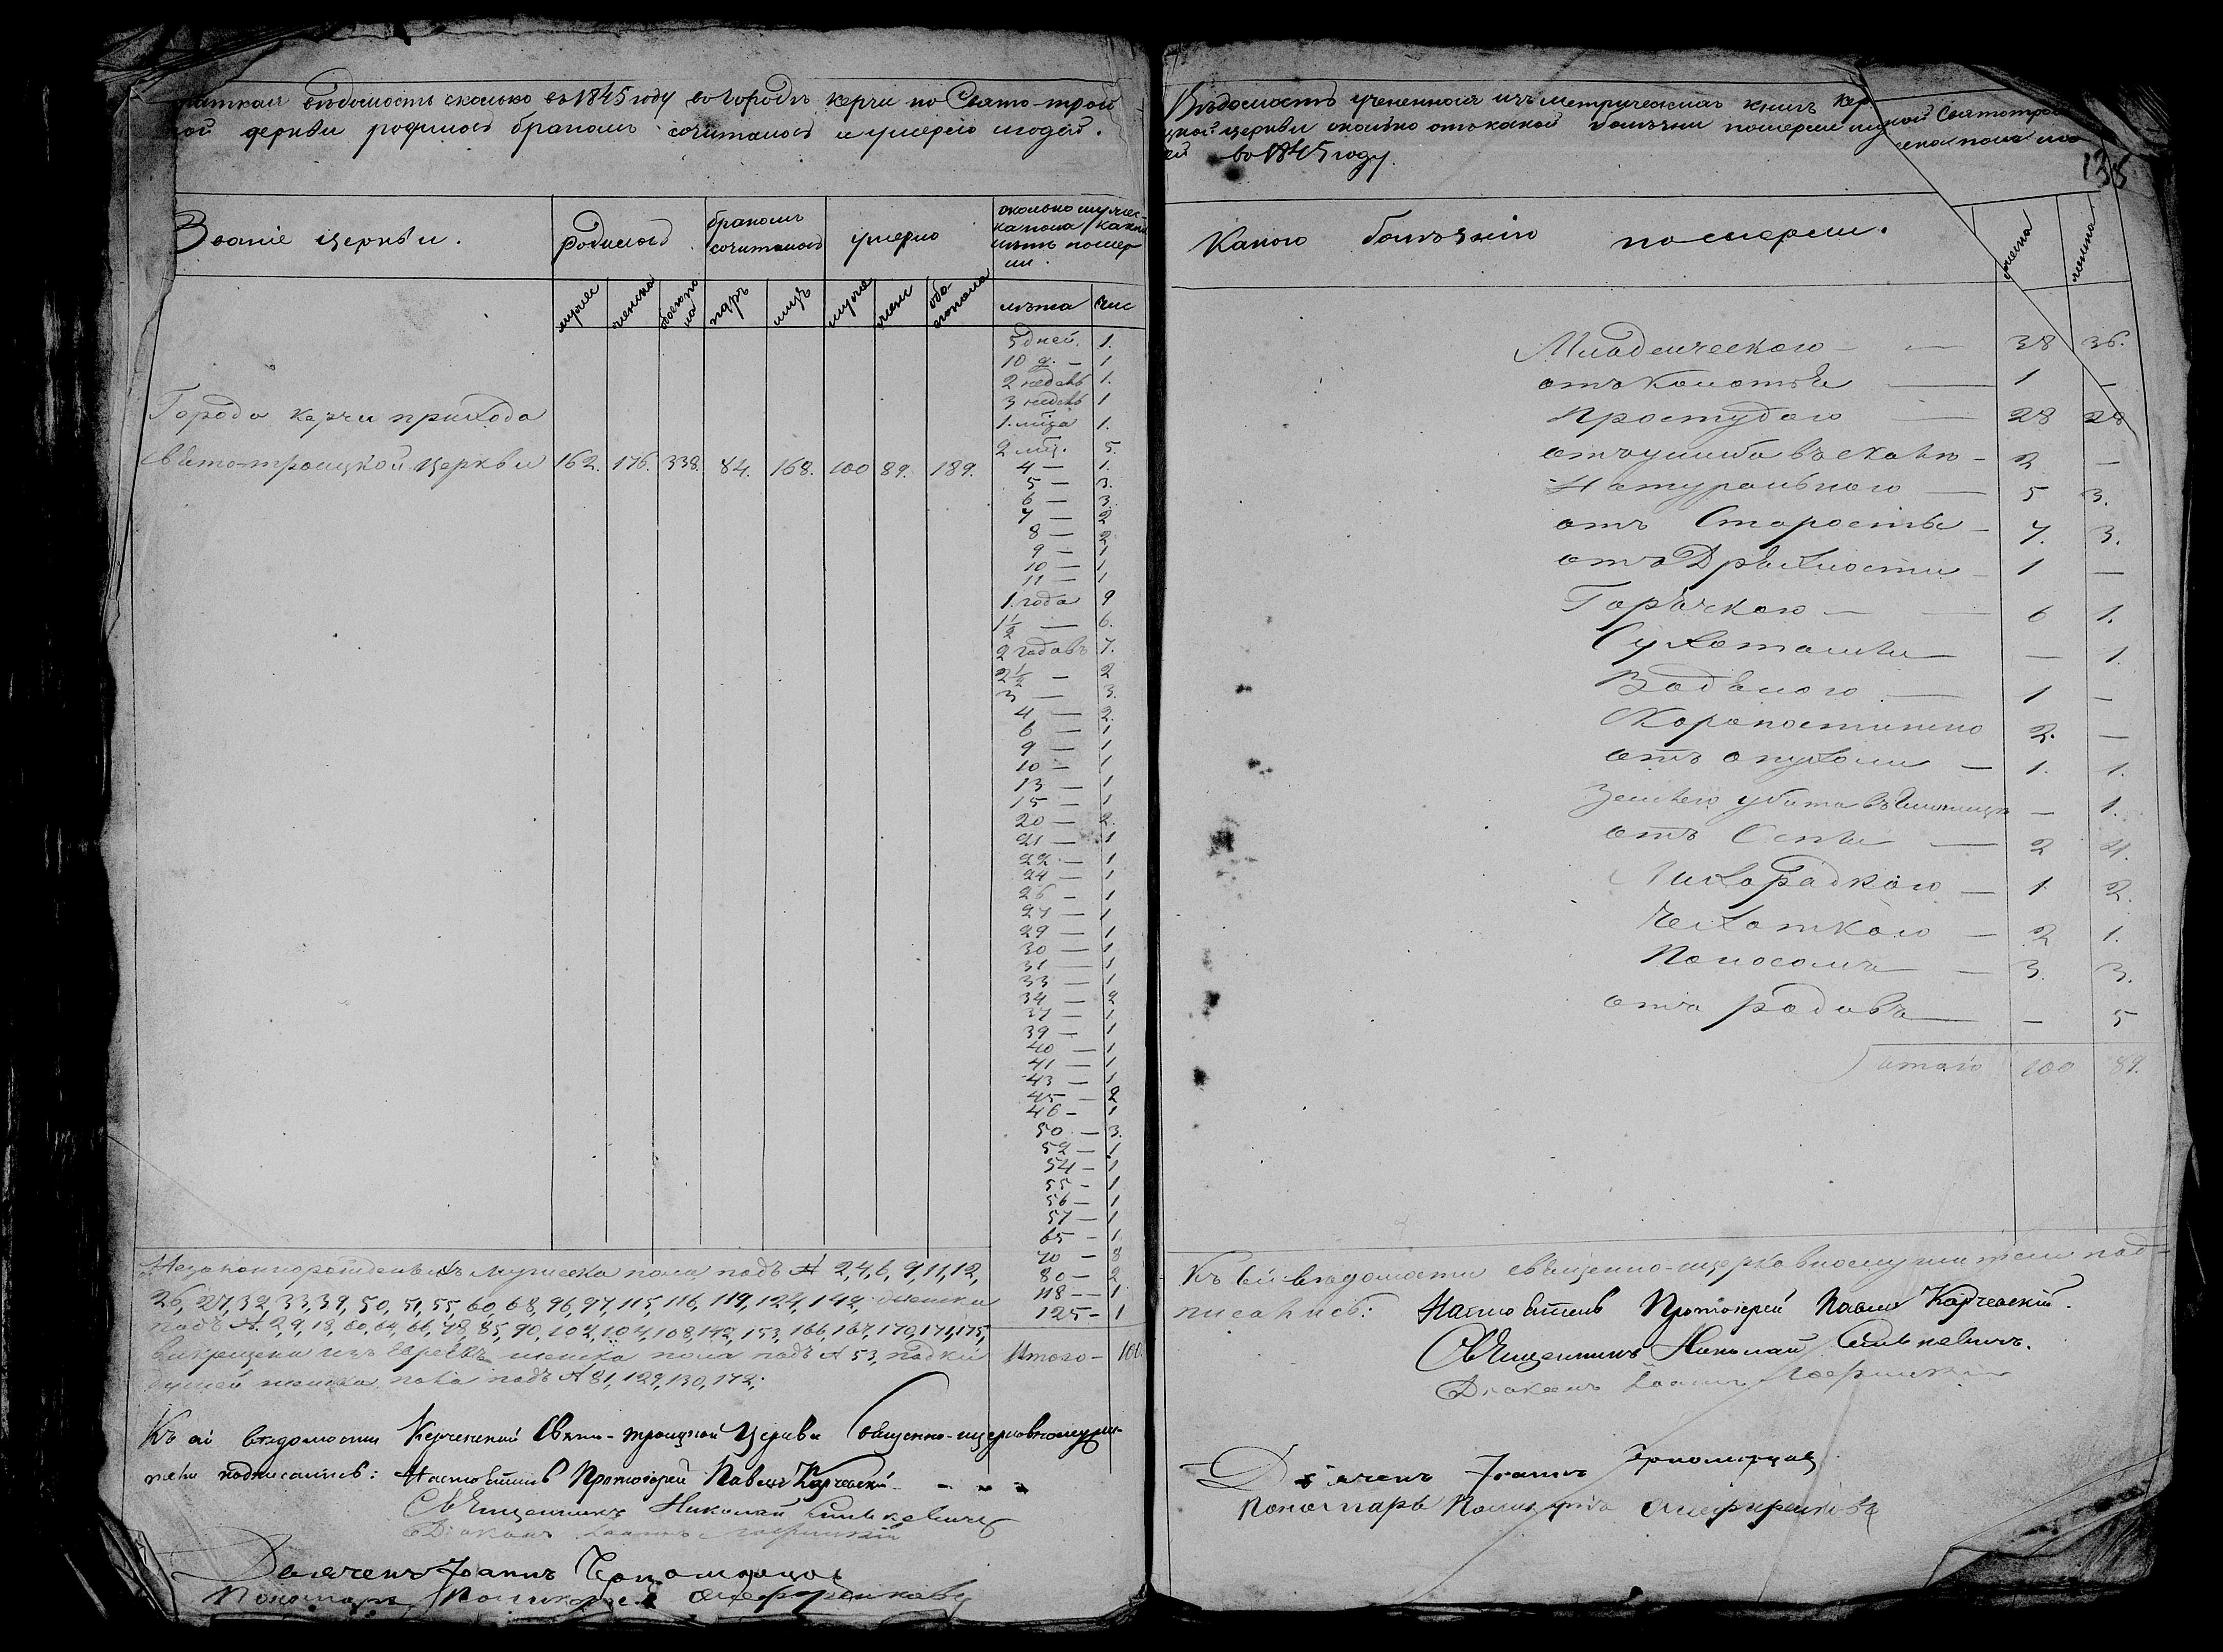 вѣдомость сколько въ 1845 году въ городѣ Керчи по Свято-трои
кой церкви родилось бракомъ сочиталось и умерло людей.
Званіе церкви.
родилось
бракомъ сочиталось
умерло
сколько мужес-
ка пола / каких
лѣтъ помер
ли.
мужес
женска
обоего по
ла
паръ
лицъ
муже
женс
оба
пола
лѣта
чис
5 дней. 1.
10 д. — 1
2 недѣль 1.
3 недѣль 1
1. мѣца 1.
2 мѣц. 5.
4 — 1.
5 — 3.
6 — 3.
7 — 2
8 — 2
9 — 1
10 — 1
11 — 1
1. года 9
1½ — 6.
2 годовъ 7.
2½ — 2
3 — 3.
4 — 2.
6 — 1
9 — 1
10 — 1
13 — 1
15 — 1
20 — 2.
21 — 1
22 — 1
24 — 1
26 — 1
27 — 1
29 — 1
30 — 1
31 — 1
33 — 1
34 — 2
37 — 1
39 — 1
40 — 1
41 — 1
43 — 1
45 — 2
46 — 1
50 — 3.
52 — 1
54 — 1
55 — 1
56 — 1
57 — 1
65 — 1
70 — 8
80 — 2
118 — 1
125 — 1
Итого — 100.
Города Керчи прихода
Свято-троицкой церкви 162. 176. 338. 84. 168. 100 89. 189.
Незаконнорожденныхъ мужеска пола подъ № 2, 4, 6, 9, 11, 12,
26, 27, 32, 33, 39, 50, 51, 55, 60, 68, 96, 97, 115, 116, 119, 124, 142, женска
подъ №. 2, 9, 18, 60, 64, 66, 78, 85, 90, 102, 104, 108, 142, 153, 166, 167, 170, 171, 175,
выкрещена изъ евреевъ женска пола подъ № 53, подки
дышей женска пола подъ № 81, 129, 130, 172,
Къ сей вѣдомости Керченской Свято-троицкой Церкви Священно-церковнослужи-
тели подписались: Настоятель Протоіерей Павелъ Карчевскій
Священникъ Николай
Діаконъ Іоаннъ
Дьячекъ Іоаннъ Черноморцовъ
Пономарь
Вѣдомость учененная изъ метрическихъ книгъ Кер
кой Святотрои
цкой церкви сколько отъ какой болѣзни померли му
женска пола лю
ей въ 1845 году.
135
Какою болѣзнію померли.
мужска
женска
Младенческою — 38 36.
отъ Колотья — 1 —
Простудою — 28 28
отъ ушиба въ скалѣ — 2 —
Натуральною — 5 3.
отъ Старости — 7. 3.
отъ Дряхлости — 1 —
Горячкою — 6 1.
Сухотами — — 1.
Водяною — 1 —
Скоропостижно 2. —
отъ опухоли — 1. 1.
Землею убита въ — 1.
отъ Оспы — 2 4.
Лихорадкою — 1 2.
Чехоткою — 2 1.
Поносомъ — 3. 3.
отъ родовъ — — 5
итого 100 89.
Къ сей вѣдомости священно-церковнослужители под-
писались: Настоятель Протоіерей Павелъ Карчевскій.
Священникъ Николай
Діаконъ Іоаннъ
Дьячекъ Іоаннъ Черноморцовъ
Пономарь